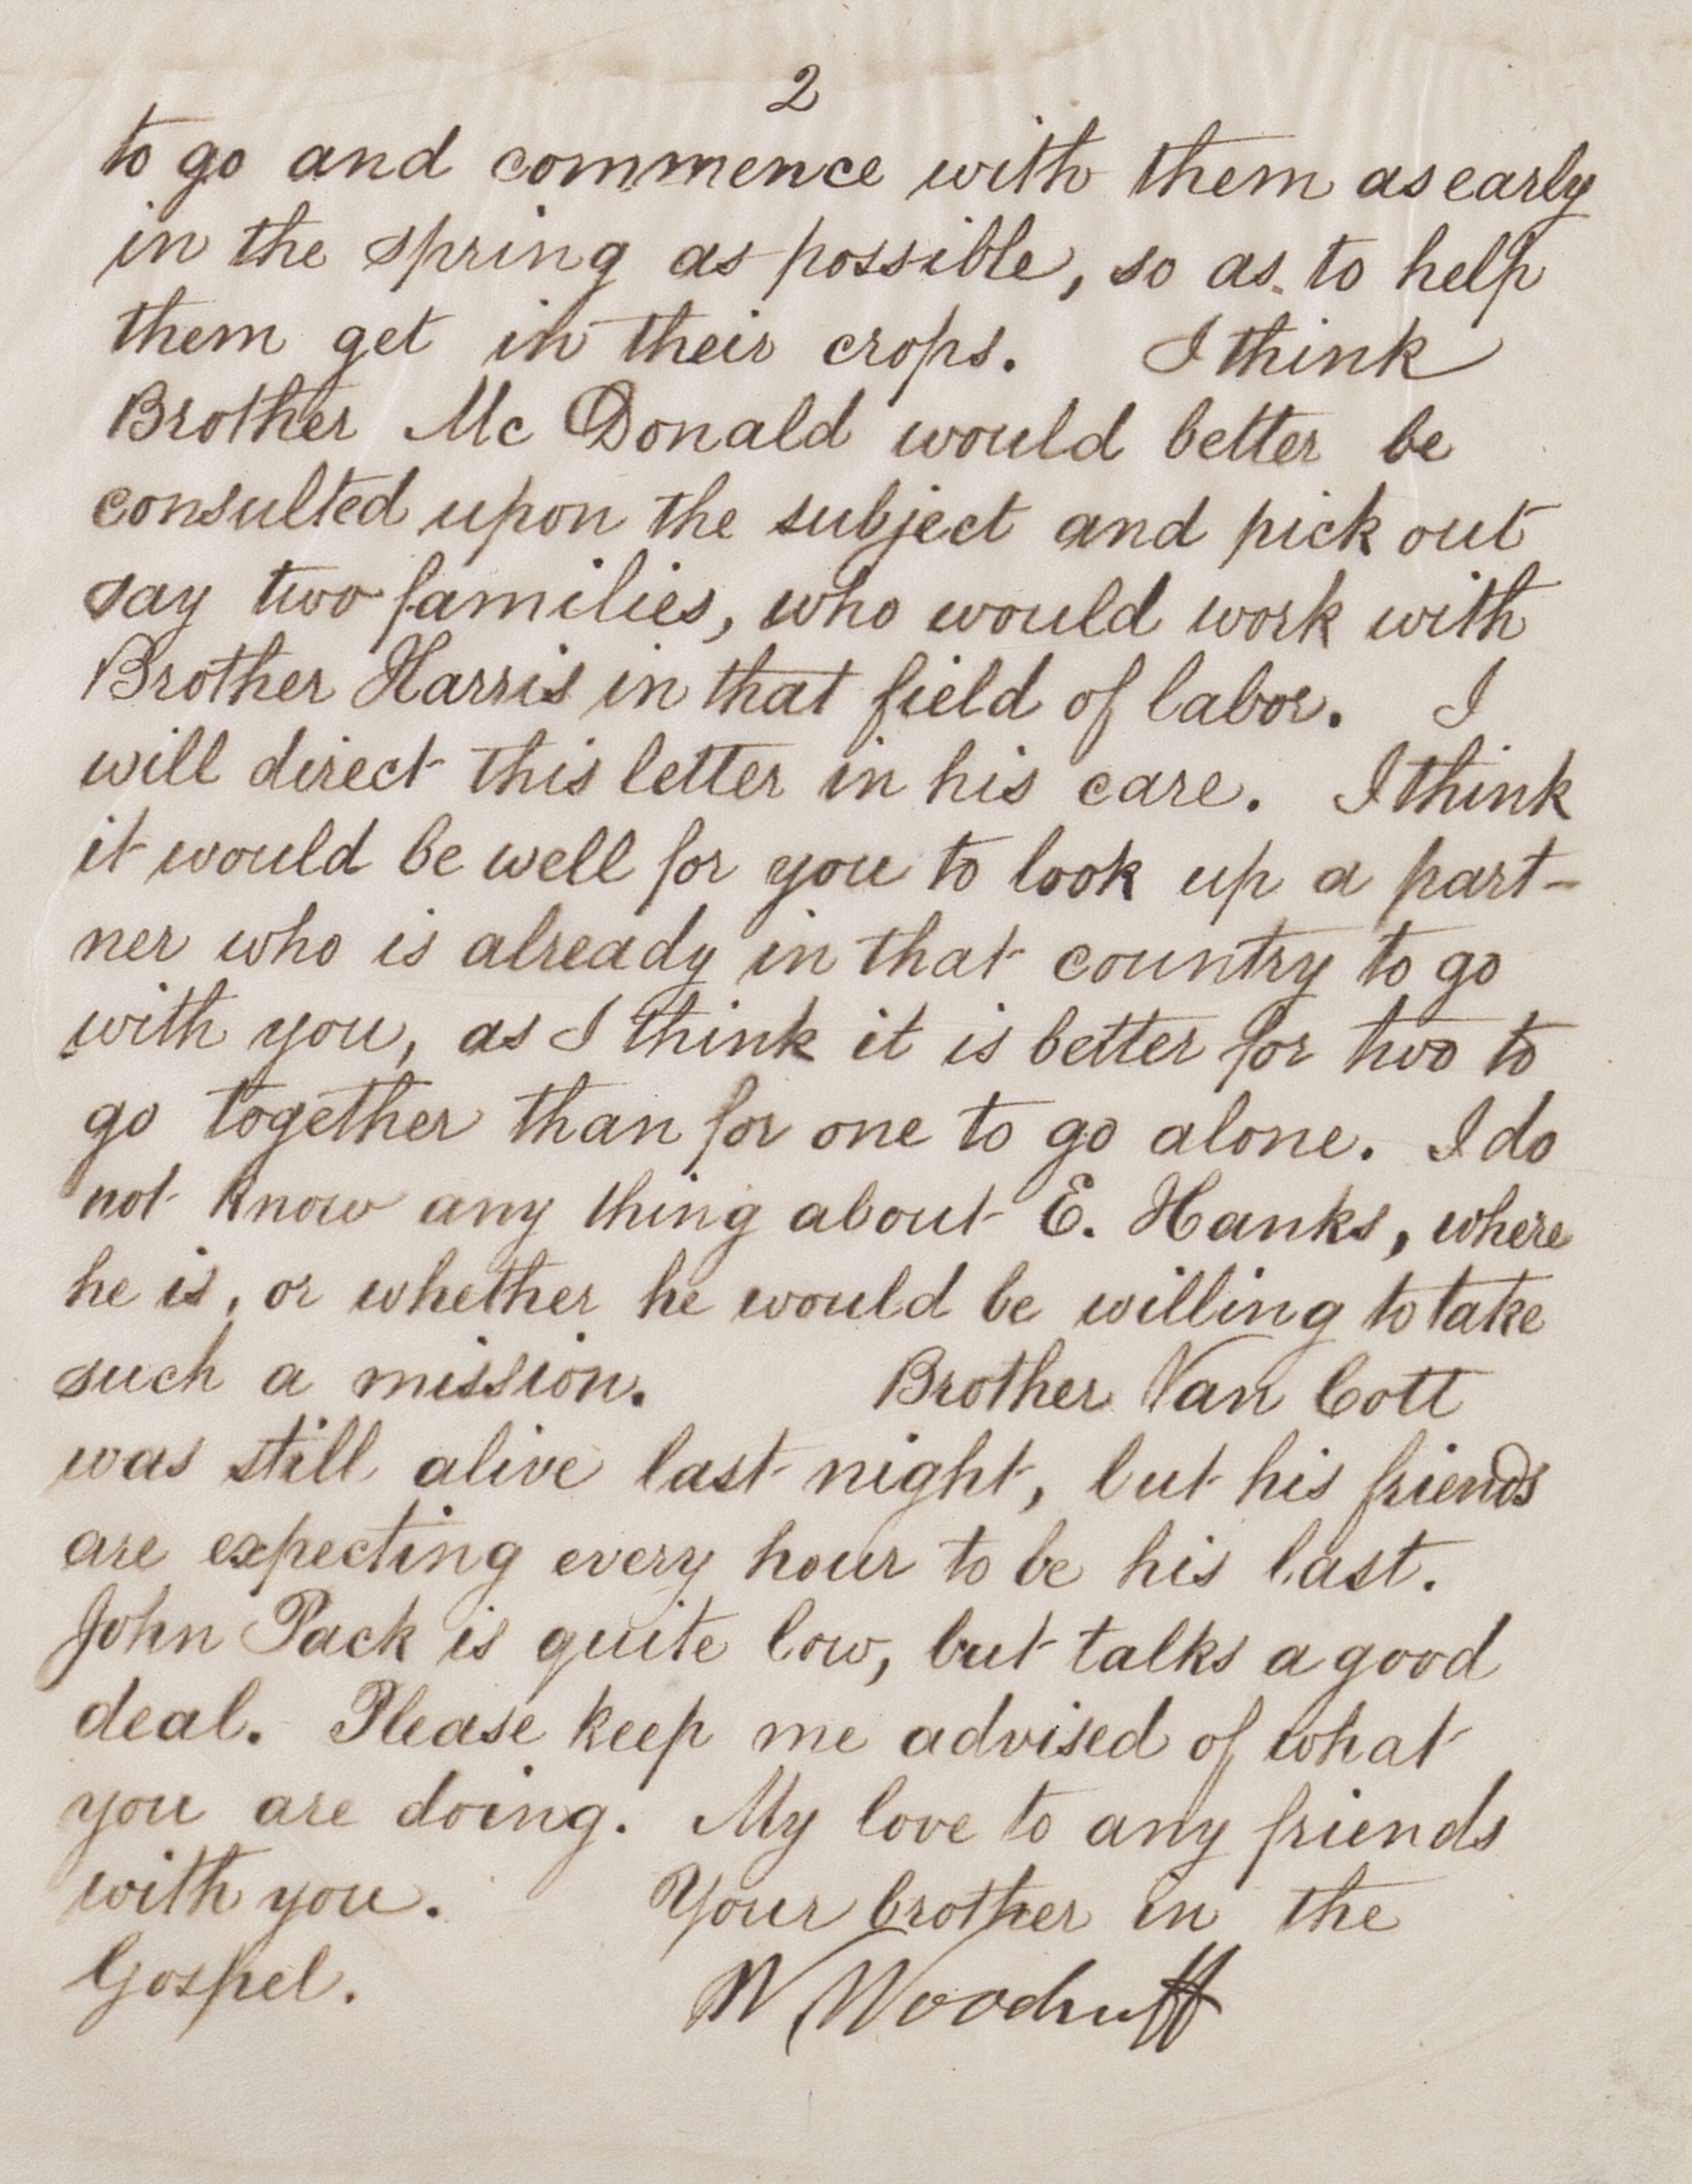 2
to go and commence with them as early
in the spring as possible, so as to help
them get in their crops. I think
Brother Mc Donald would better be
consulted upon the subject and pick out
say two families, who would work with
Brother Harris in that field of labor. I
will direct this letter in his care. I think
it would be well for you to look up a part-
ner who is already in that country to go
with you, as I think it is better for two to
go together than for one to go alone. I do
not know any thing about E. Hanks, where
he is, or whether he would be willing to take
such a mission. Brother Van Cott
was still alive last night, but his friends
are expecting every hour to be his last.
John Pack is quite low, but talks a good
deal. Please keep me advised of what
you are doing. My love to any friends
with you. Your brother in the
Gospel. W Woodruff